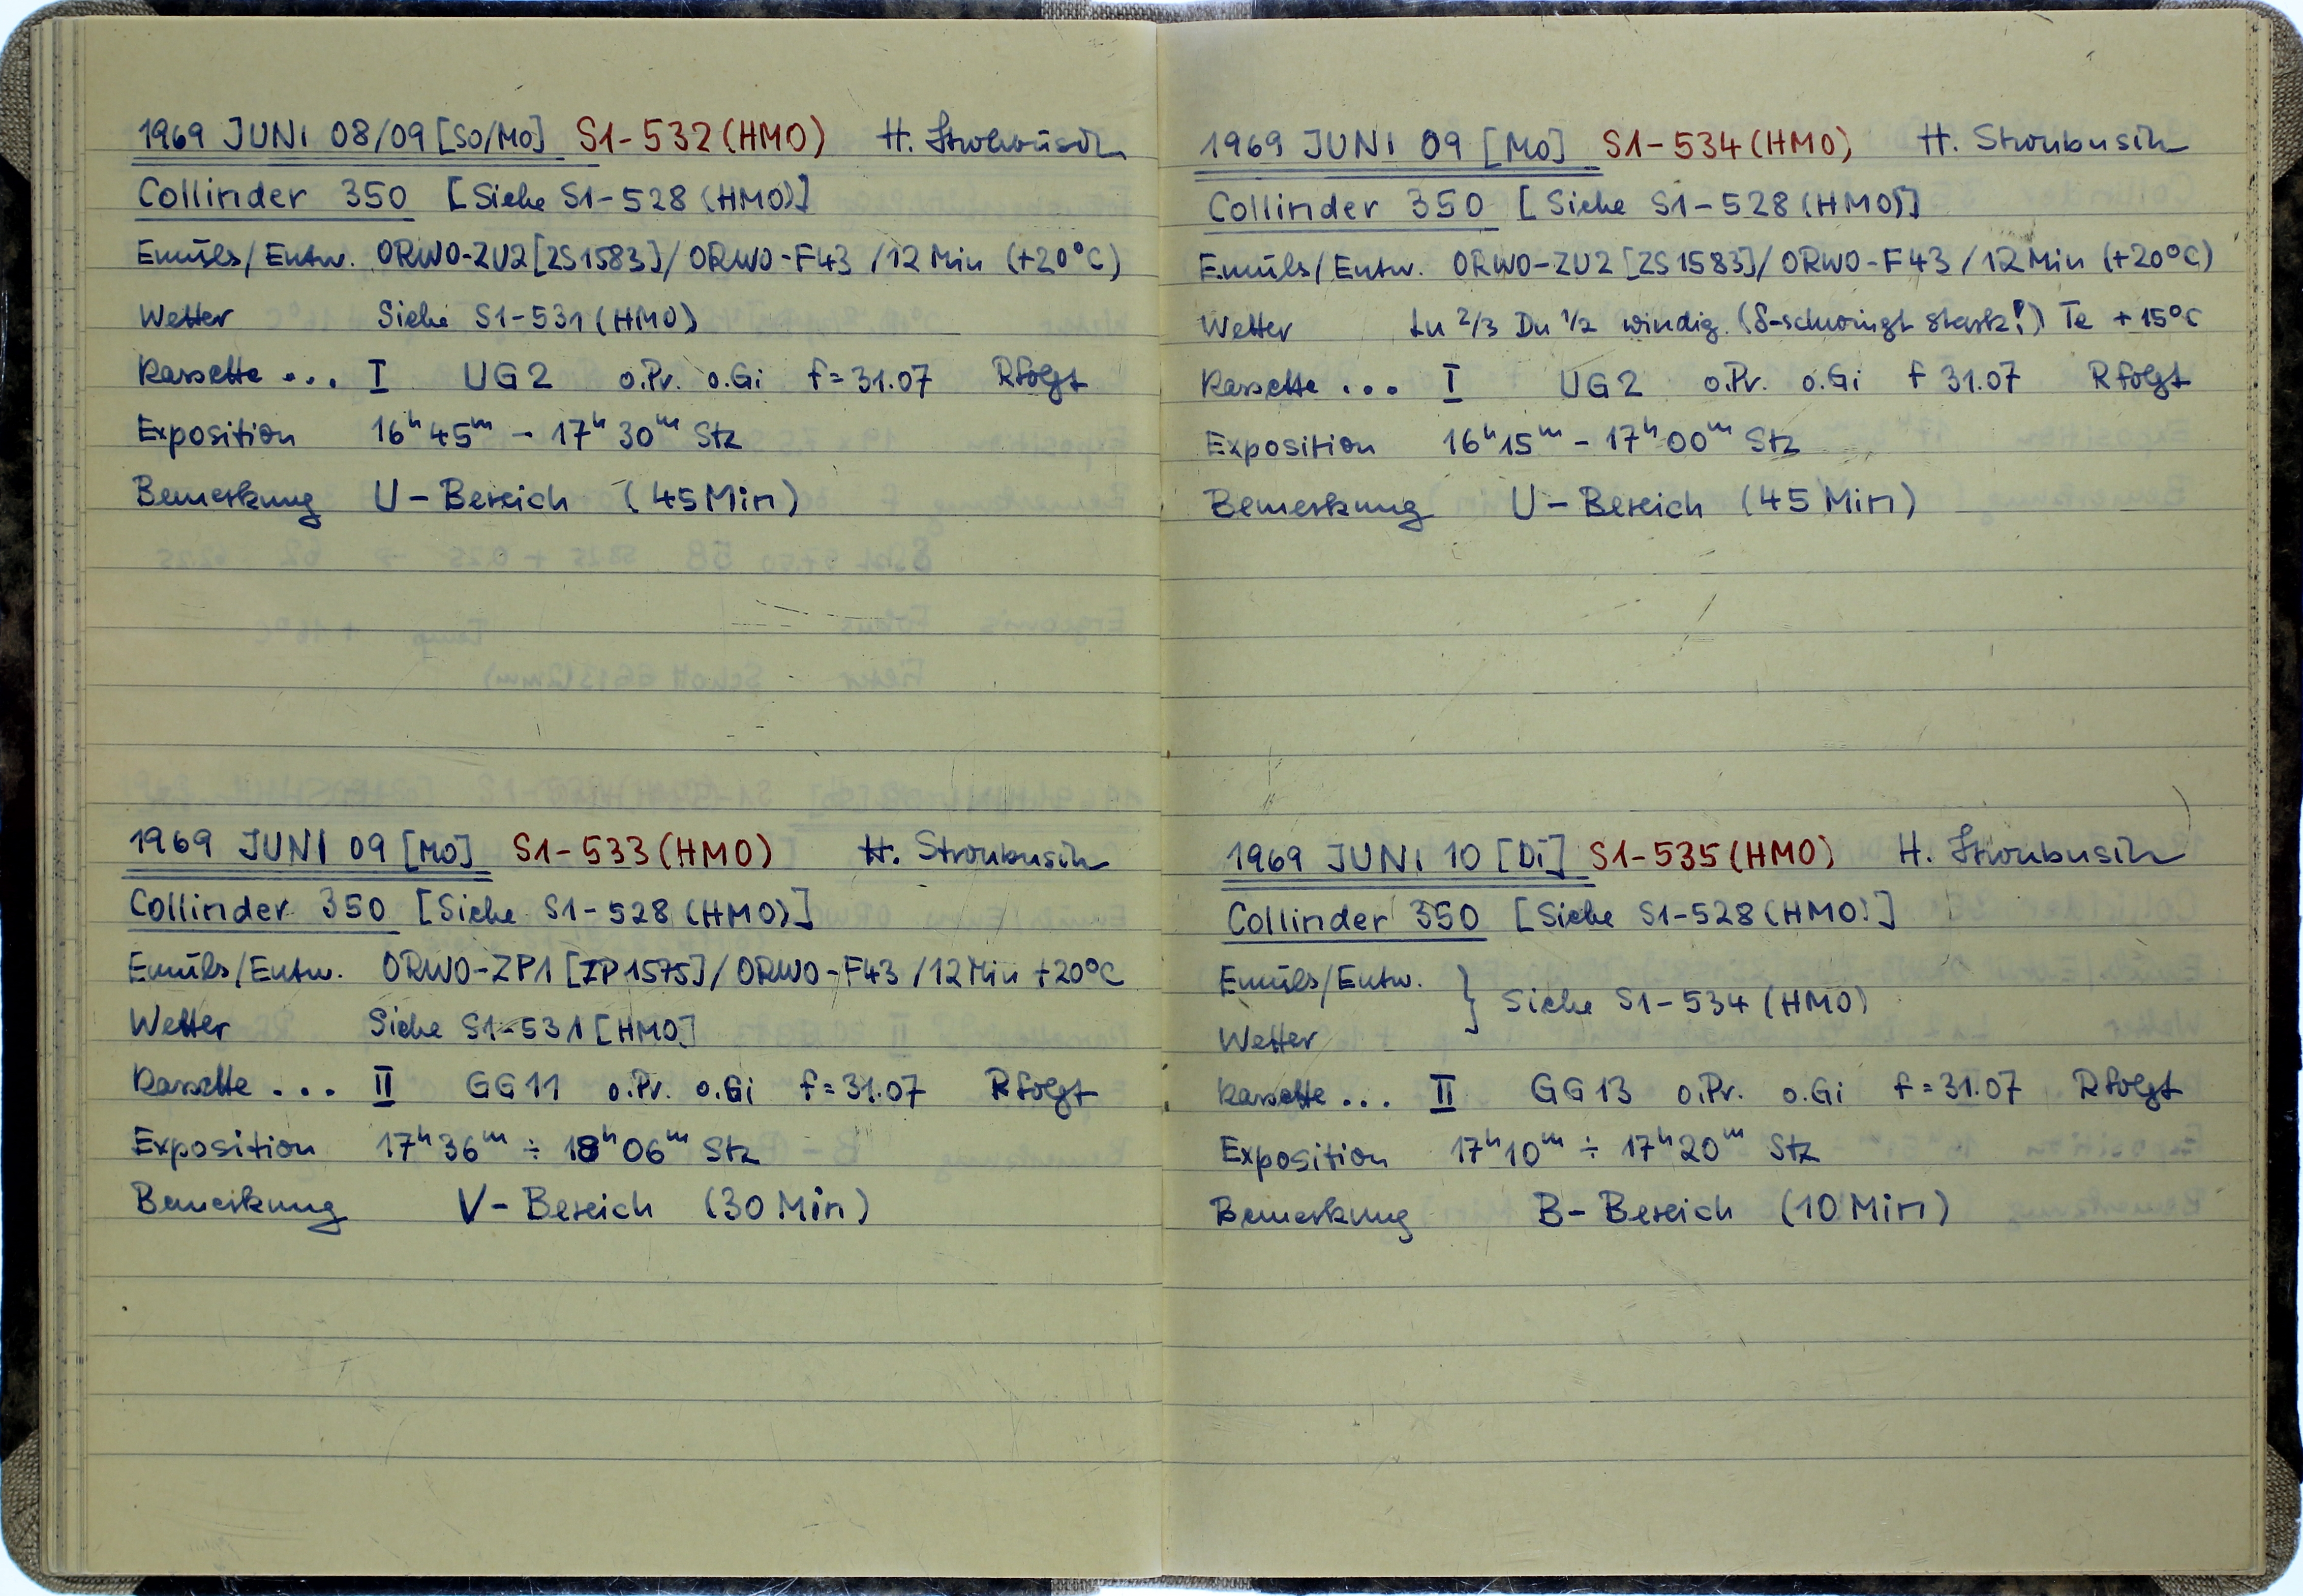 1969 JUNI 08/09 [SO/MO] S1-532 (HMO) H. Stroubusch
Collinder 350 [Siehe S1-528 (HMO)]
Emuls/Entw. ORWO-ZU2 [ZS1583] / ORWO-F43 / 12 Min (+20°C)
Wetter Siehe S1-531 (HMO)
Kassette ... I UG2 o.Pr. o.Gi f=31.07 Rfolgt
Exposition 16h 45m - 17h 30m Stz
Bemerkung U-Bereich (45 Min)
1969 JUNI 09 [MO] S1-533 (HMO) H. Stroubusch
Collinder 350 [Siehe S1-528 (HMO)]
Emuls/Entw. ORWO-ZP1 [ZP1575] / ORWO-F43 / 12 Min +20°C
Wetter Siehe S1-531 [HMO]
Kassette ... II GG11 o.Pr. o.Gi f=31.07 Rfolgt
Exposition 17h 36m ÷ 18h 06m Stz
Bemerkung V-Bereich (30 Min)
1969 JUNI 09 [MO] S1-534 (HMO) H. Stroubusch
Collinder 350 [Siehe S1-528 (HMO)]
Emuls/Entw. ORWO-ZU2 [ZS1583] / ORWO-F43 / 12 Min (+20°C)
Wetter Lu 2/3 Du 1/2 windig. (δ-schwingt stark!) Te +15°C
Kassette ... I UG2 o.Pr. o.Gi f 31.07 Rfolgt
Exposition 16h 15m - 17h 00m Stz
Bemerkung U-Bereich (45 Min)
1969 JUNI 10 [Di] S1-535 (HMO) H. Stroubusch
Collinder 350 [Siehe S1-528 (HMO)]
Emuls/Entw. } Siehe S1-534 (HMO)
Wetter
Kassette ... II GG13 o.Pr. o.Gi f=31.07 Rfolgt
Exposition 17h 10m ÷ 17h 20m Stz
Bemerkung B-Bereich (10 Min)